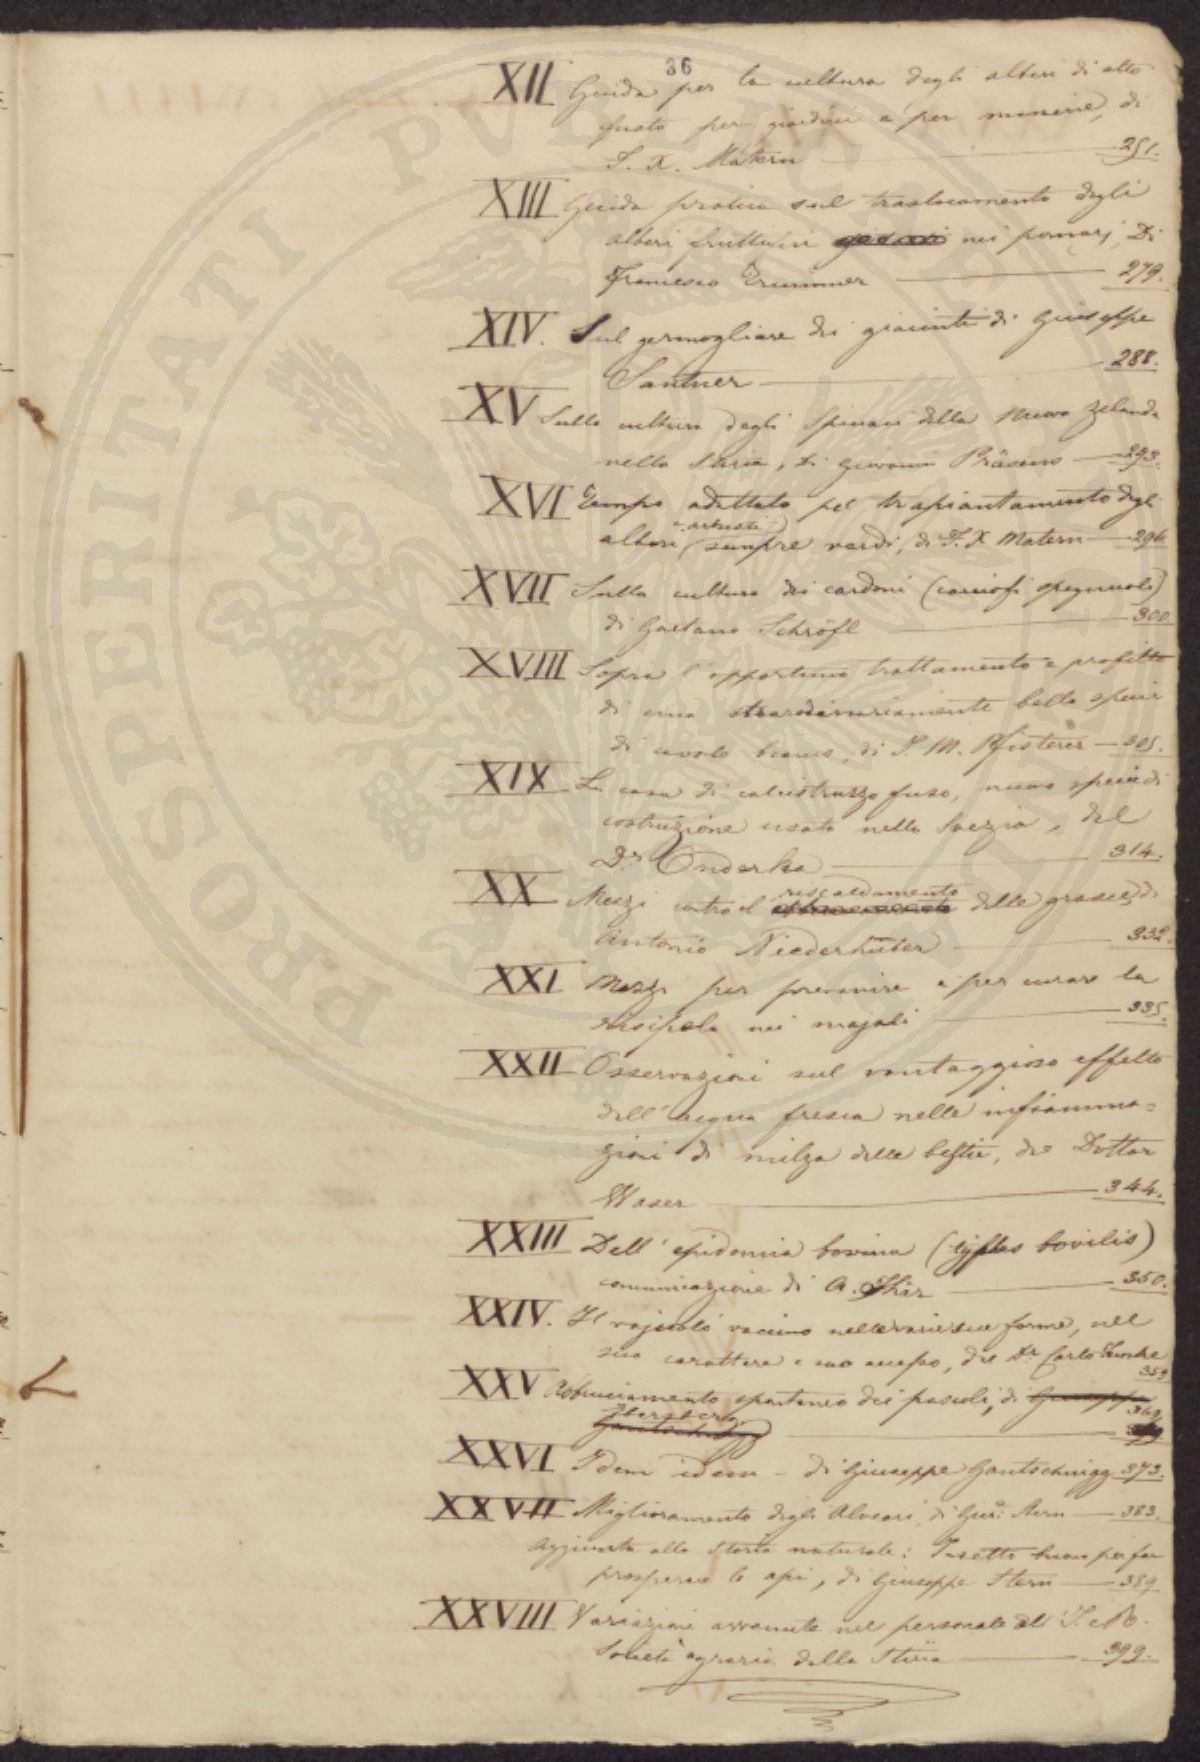 36
XII Guida per la cultura degli alberi di alto
fusto per giardini e per miniere, di
F. X. Matern 251.
XIII Guida pratica sul traslocamento degli
alberi fruttiferi nei pomarj, Di
Francesco 279.
XIV. Sul germogliare dei giacinti di Giuseppe
Santner 288.
XV Sulla cultura degli Spinaci della Nuova Zelanda
nella Stiria, di Giovanni 293.
XVI Tempo adattato pel trapiantamento degli
e arbusti
alberi (sempre verdi, di F. X Matern 296
XVII Sulla cultura dei cardoni (carciofi spagnuoli)
di Gaetano Schröfl 300
XVIII Sopra l'opportuno trattamento e profitto
di una straordinariamente bella specie
di cavolo bianco, di J. M. Pfisterer 305.
XIX La casa di calcistruzzo fuso, nuova specie di
costruzione usata nella Svezia, del
Dr. Onderka 314.
riscaldamento
XX Mezzi contro il delle granaglie, di
Antonio Niederhuber 332.
XXI Mezzi per prevenire e per curare la
risipola nei majali 335.
XXII Osservazioni sul vantaggioso effetto
dell'acqua fresca nelle infiamma=
zioni di milza delle bestie, del Dottor
Waser 344.
XXIII Dell'epidemia bovina (typhus bovilis)
comunicazione di A. 350.
XXIV. Il vajuolo vaccino nelle varie sue forme, nel
suo carattere e suo decorso, del Dr. Carlo
359
XXV Abbruciamento spontaneo dei pascoli, di Giuseppe
369
XXVI Idem idem - di Giuseppe Gautschnigg 373.
XXVII Miglioramento degli Alveari, di Gius: Stern 383.
Aggiunta alla Storia naturale: Insetto buono per far
prosperare le api, di Giuseppe Stern 389
XXVIII Variazioni avvenute nel personale dell' I. e R.
Società agraria della Stiria 399.
PROSPERITATI PVBLICAE